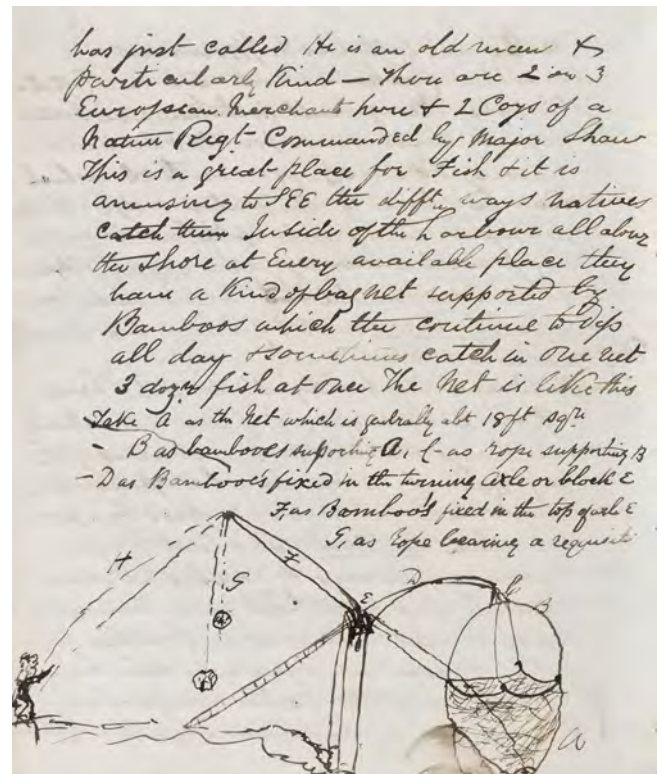 has just called He is an old man &
particularly Kind – There are 2 or 3
European Merchants here & 2 Coys of a
Native Regt Commanded by Major Shaw
This is a great place for Fish & it is
amusing to SEE the difft ways natives
catch them Inside of the harbour all along
the shore at Every available place they
have a Kind of bag net supported by
Bamboos which the continue to Dip
all day & sometimes catch in one net
3 dozn fish at once The Net is like this
Take A as the Net which is genrally abt 18ft sqre
- B as bambooes suporting A, C as rope supporting B
- D as Bamboo's fixed in the turning axle or block E
F, as Bamboo's fixed in the top of axle E
G, as rope bearing a requisite
H
G
F
E
D
C
B
A